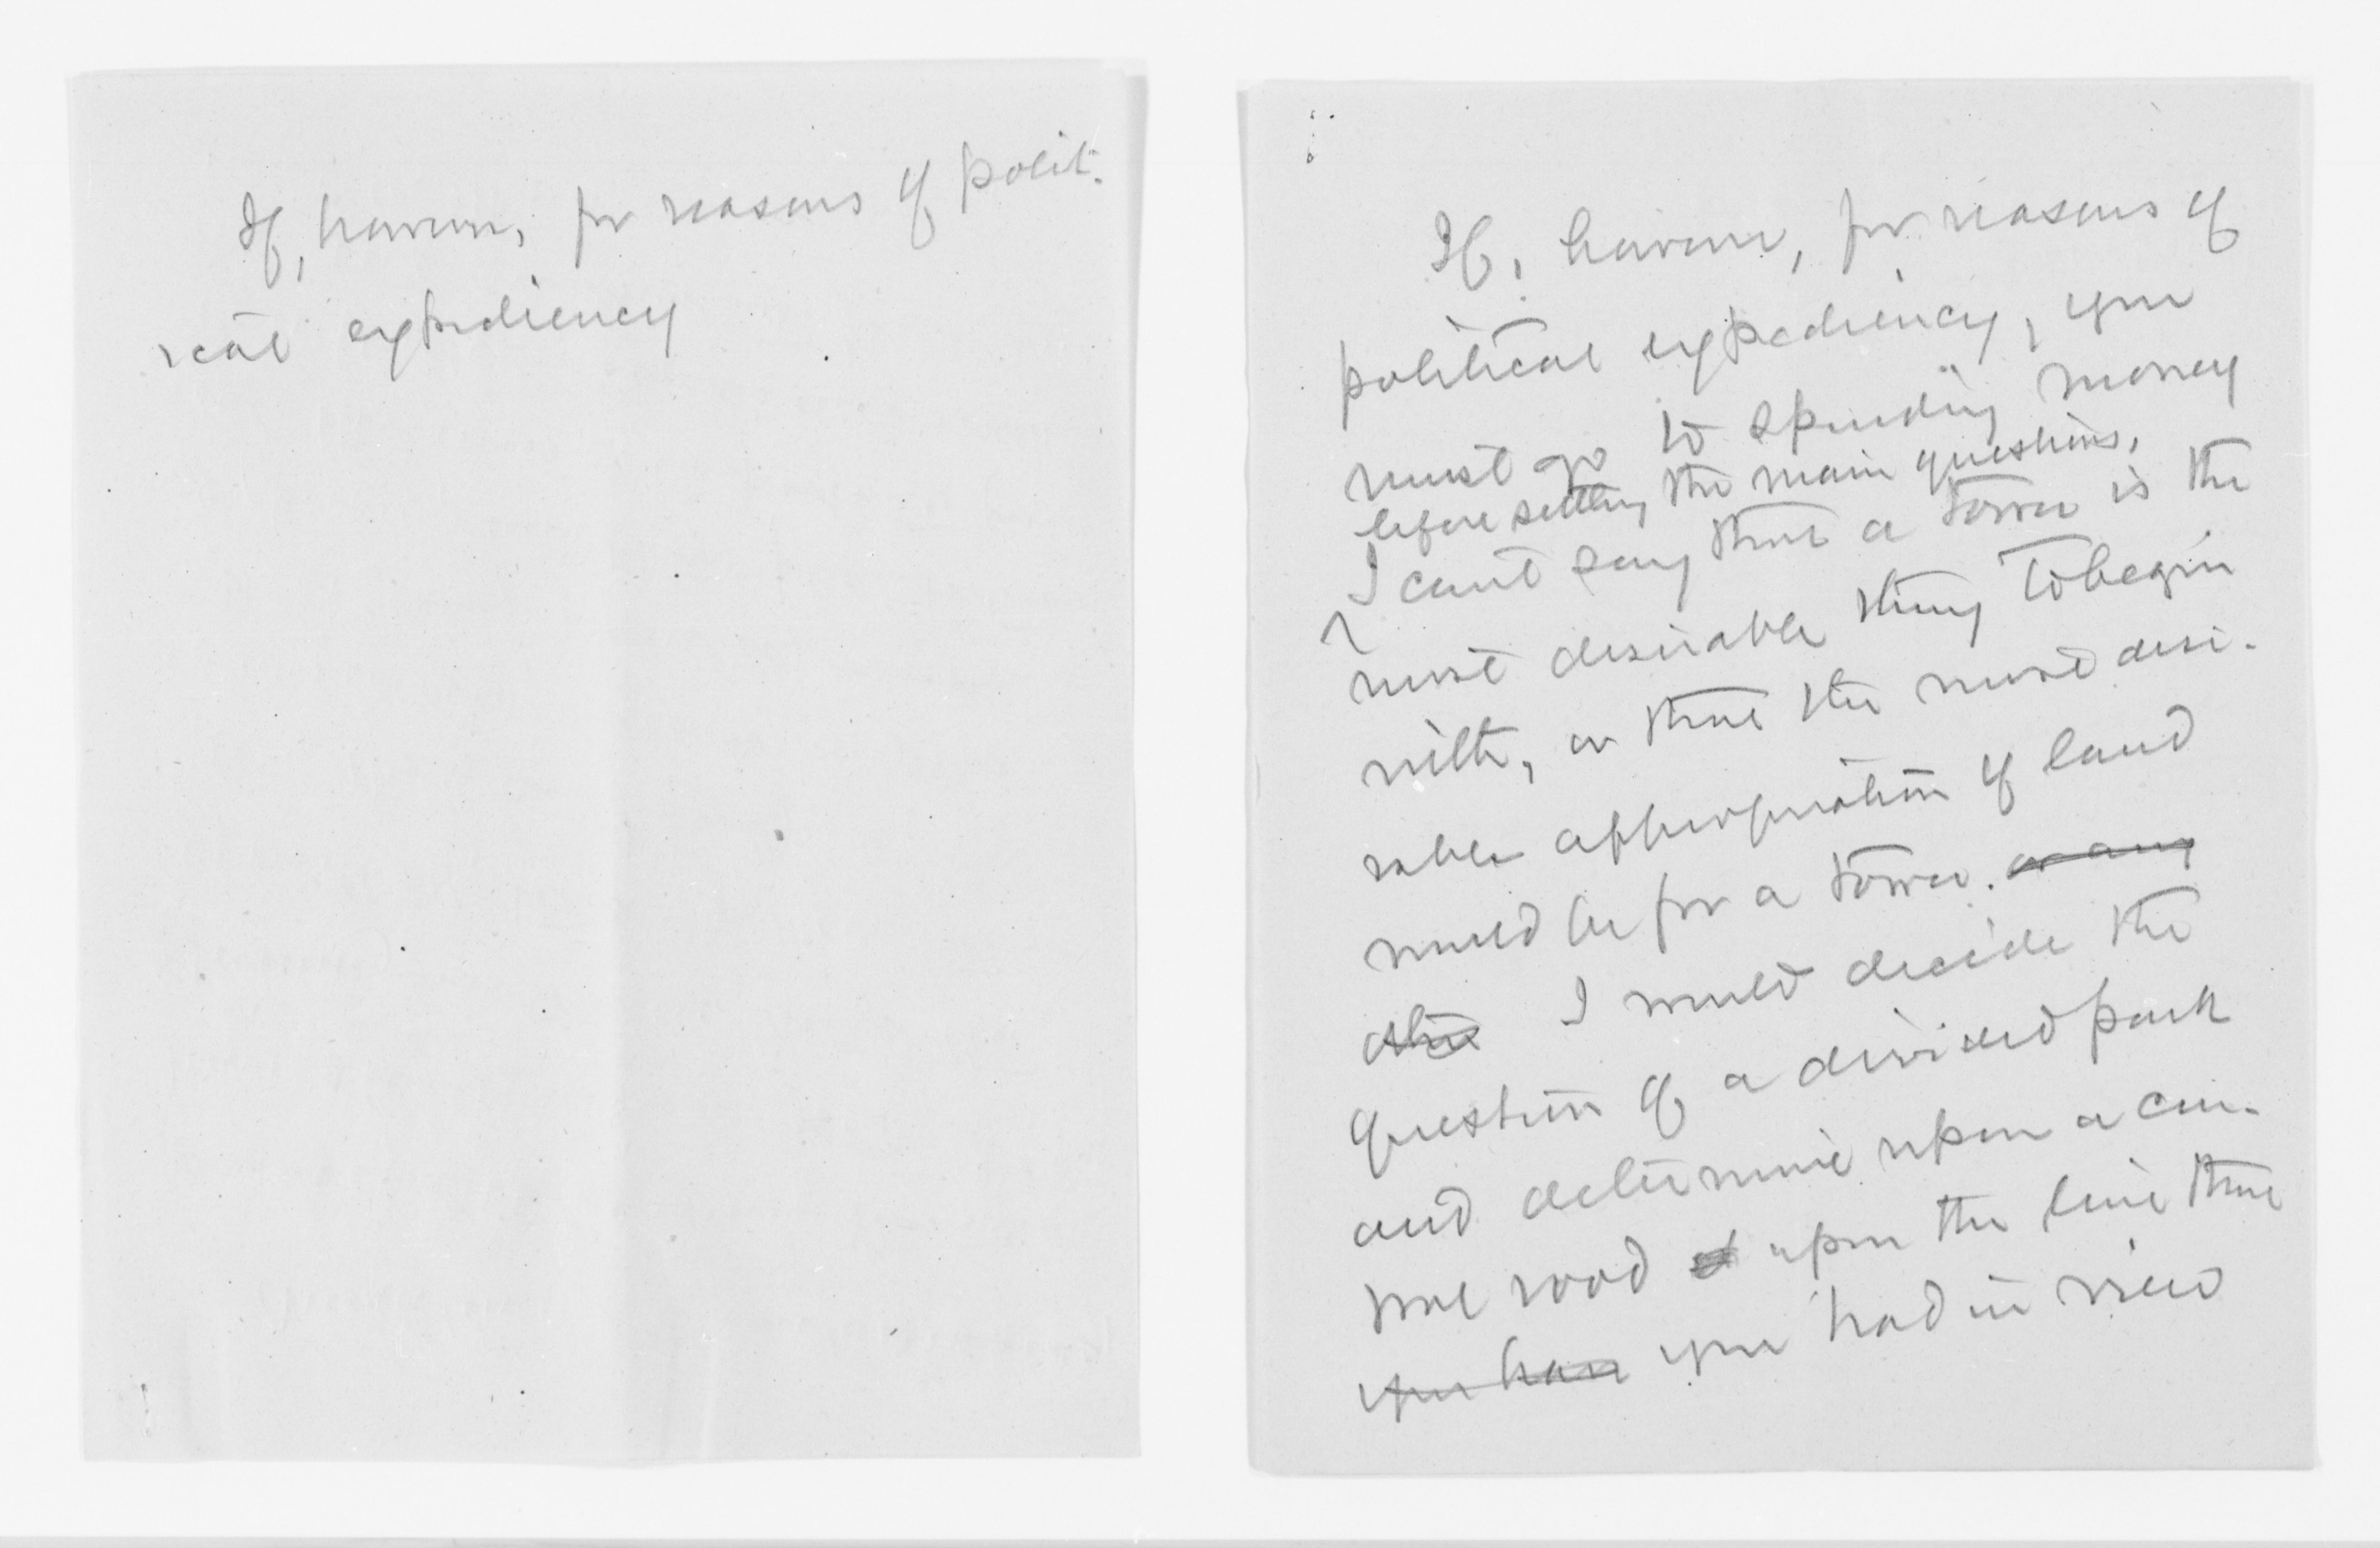 If, however, for reasons of polit-
ical expediency
If, however, for reasons of
political expediency, you
must go to spending money
before settling the main questions,
I can't say that a tower is the
most desirable thing to begin
with, or that the most desi-
rable appropriation of land
would be for a tower. or any
other I would decide the
question of a divided park
and determine upon a cen-
tral road upon the line that
you have you had in view